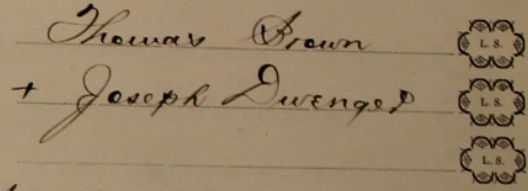 Thomas Brown L. S.
+ Joseph Dwenger L. S.
L. S.